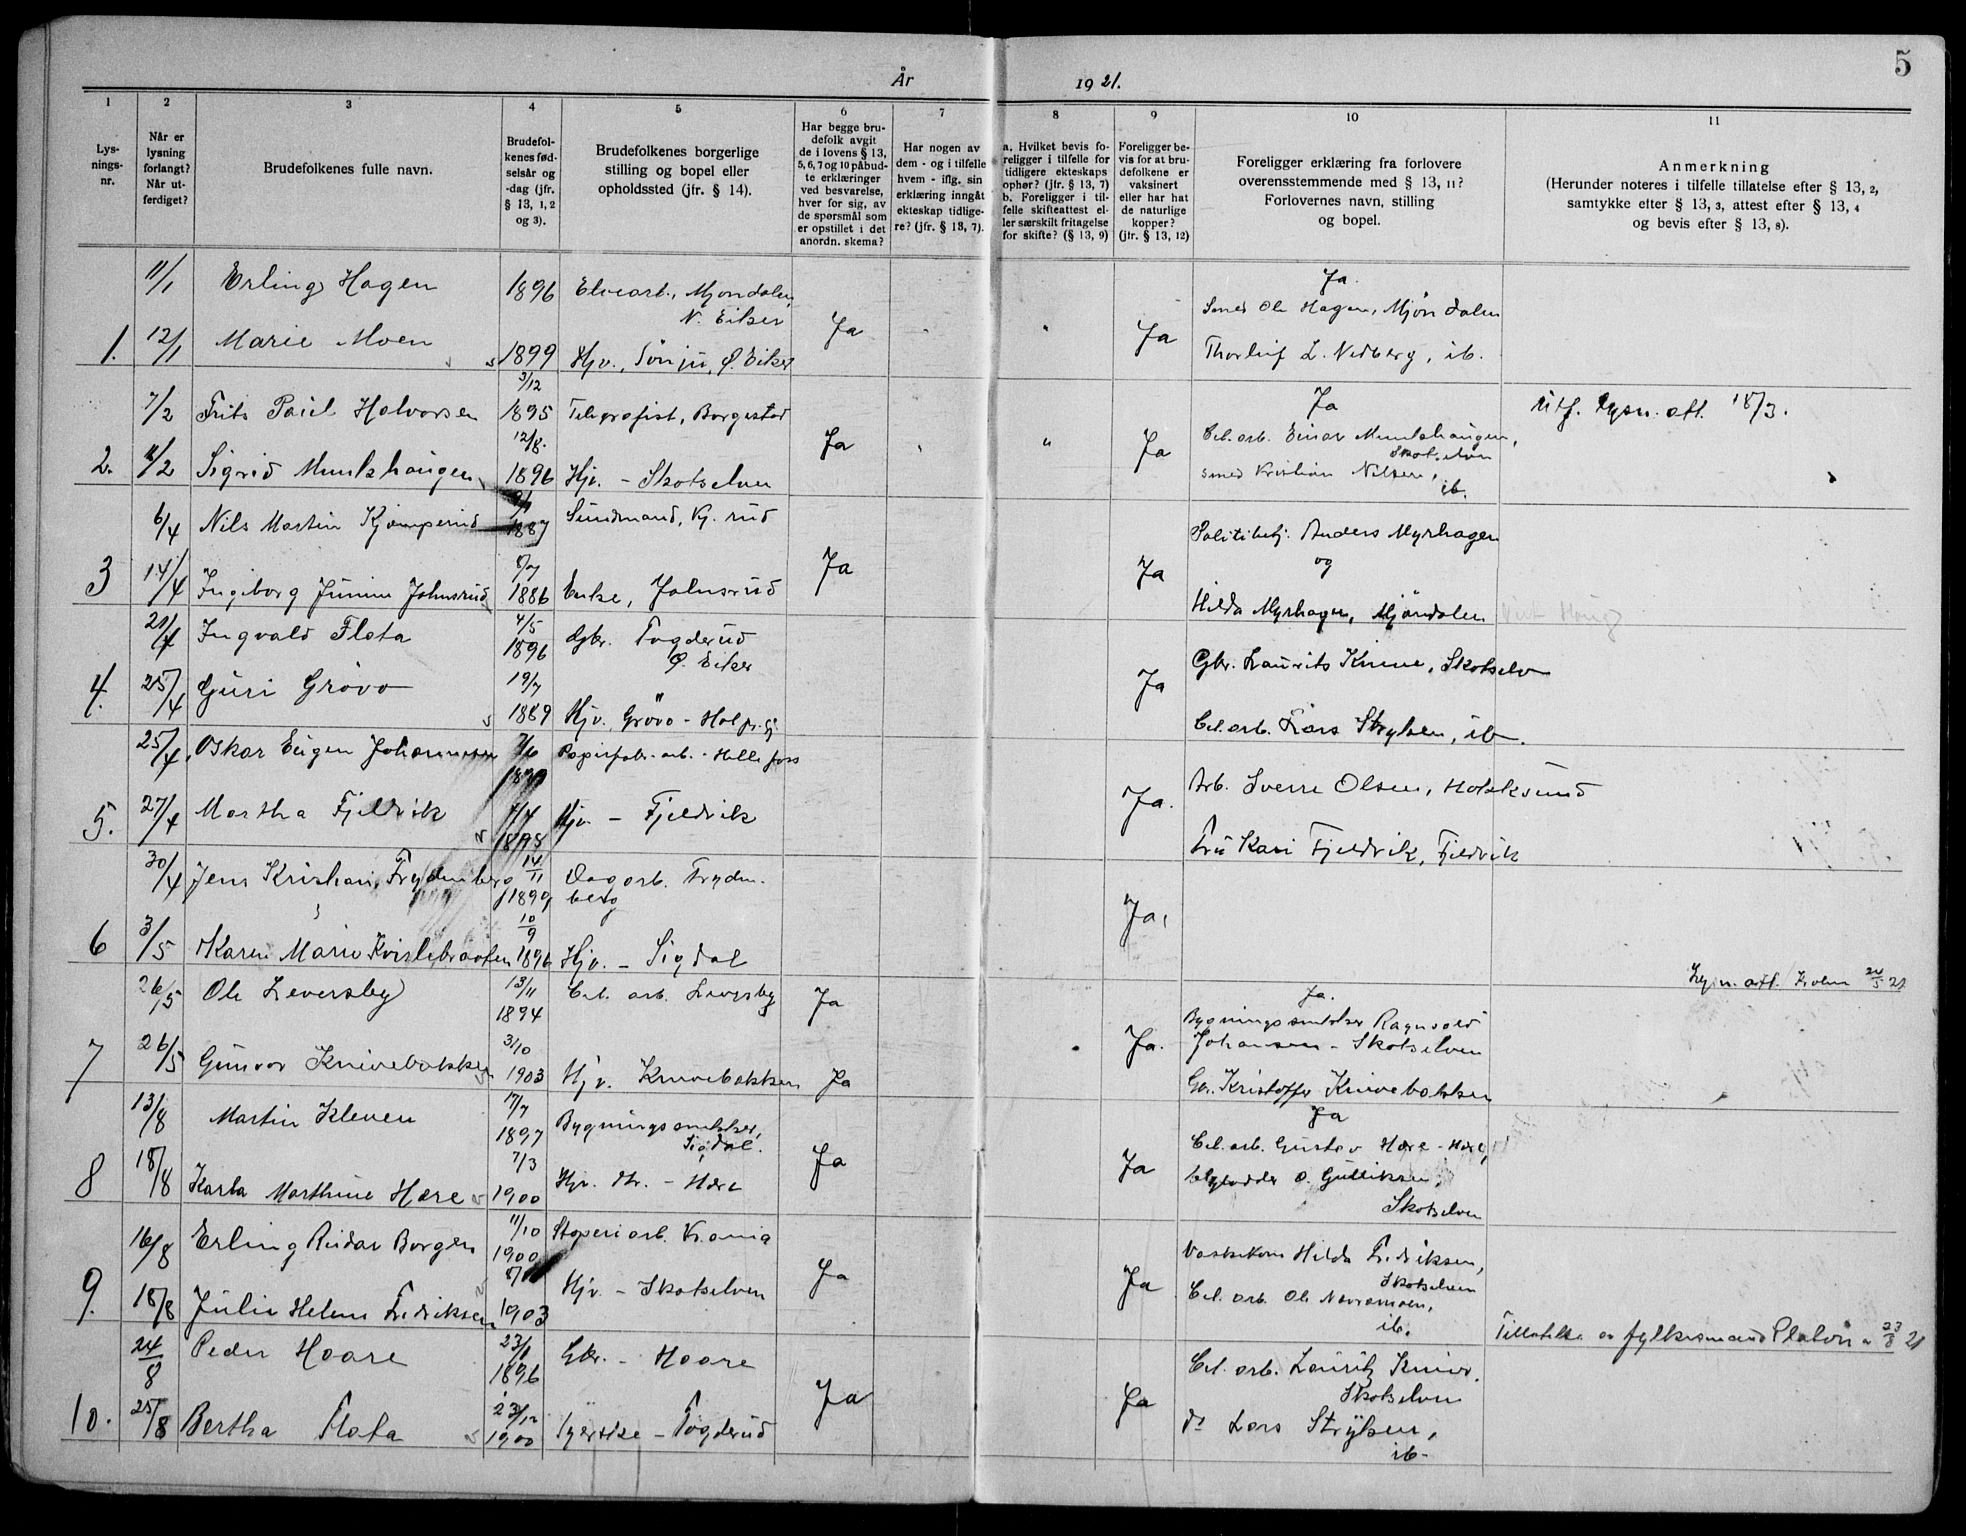 5
År 1921.
1 2 3 4 5 6 7 8 9 10 11
Lys-
nings-
nr.
Når er
lysning
forlangt?
Når ut-
ferdiget?
Brudefolkenes fulle navn.
Brudefol-
kenes fød-
selsår og
-dag (jfr.
§ 13, 1, 2
og 3).
Brudefolkenes borgerlige
stilling og bopel eller
opholdssted (jfr. § 14).
Har begge bru-
defolk avgit
de i lovens § 13,
5, 6, 7 og 10 påbud-
te erklæringer
ved besvarelse,
hver for sig, av
de spørsmål som
er opstillet i det
anordn. skema?
Har nogen av
dem - og i tilfelle
hvem - iflg. sin
erklæring inngåt
ekteskap tidlige-
re? (jfr. § 13, 7).
a. Hvilket bevis fo-
religger i tilfelle for
tidligere ekteskaps
ophør? (jfr. § 13, 7)
b. Foreligger i til-
felle skifteattest el-
ler særskilt fritagelse
for skifte? (§ 13, 9)
Foreligger be-
vis for at bru-
defolkene er
vaksinert
eller har hat
de naturlige
kopper?
(jfr. § 13, 12)
Foreligger erklæring fra forlovere
overensstemmende med § 13, 11?
Forlovernes navn, stilling
og bopel.
Anmerkning
(Herunder noteres i tilfelle tillatelse efter § 13, 2,
samtykke efter § 13, 3, attest efter § 13, 4
og bevis efter § 13, 8).
11/1 Erling Hagen 1896 Elvearb., Mjøndalen, Ja.
N. Eiker Smed Ole Hagen, Mjøndalen
1. 12/1 Marie Moen 1899 Hjv., Sønju, Ø. Eiker Ja " " Ja Thorleif L. Nedberg, ib.
7/2 Frits Paul Halvorsen 3/12 1895 Telegrafist, Borgestad Ja Utf. lysn. att. 18/3.
Cel. arb. Einar Munkshaugen,
Skotselven
2. 11/2 Sigrid Munkshaugen 12/8. 1896 Hjv. - Skotselven Ja " " Ja smed Kristian Nilsen,
ib.
6/4 Nils Martin Kjomperud 1887 Politibetj. Anders Myrhagen
og
3 14/4 Ingeborg Johnsrud 1886 Enke, Johnsrud Ja Ja Hilda Myrhagen, Mjøndalen
21/4 Ingvald Flata 4/5 1896 Gbr. Togderud
Ø. Eiker Gbr. Laurits Knive, Skotselv
4. 25/4 Guri Grøvo 19/7 1889 Hjv. Grøvo - Ja Cel. arb. Lars Strylsen, ib.
25/4 Oskar Eugen Johannesen 7/6 Papirfabr. arb. - Hellefoss Arb. Sverre Olsen, Hokksund
5. 27/4 Martha Fjeldvik Hjv. - Fjeldvik Ja. Fru Kari Fjeldvik, Fjeldvik
30/4 Jens Kristian Frydenberg 14/11 1899 Dagarb. Fryden-
berg
6 3/5 Karen Marie Kvislebraaten 10/9 1896 Hjv. - Sigdal Ja,
Lysn. att. 24/5 21
26/5 Ole Leversby 13/11 1894 Cel. arb. Leversby Ja Ja.
Bygningssnekker Ragnvald
Johansen - Skotselven
7 26/5 Gunvor Knivebakken 3/10 1903 Hjv. Knivebakken Ja Ja. Gbr. Kristoffer Knivebakken
13/8 Martin Kleven 17/7 1897 Bygningssnekker, Ja
Sigdal. Cel. arb. Gustav Hære - Hære,
8 18/8 Karla Marthine Hære 7/3 1900 Hjv. - Hære Ja Ja O. Gulliksen,
Skotselven
16/8 Erling Reidar Borgen 11/10 1900 Støperiarb. Kr.ania Hilda Fredriksen,
Skotselven
9. 18/8 Julie Helene Fredriksen 1903 Hjv. - Skotselven Ja Ja Cel. arb. Ole
ib.
24/8 Peder Hoare 23/1 1896 Gbr. - Hoare Tillatelse av fylkesmand 23/8 21
Cel. arb. Lauritz Knive,
Skotselven
10. 25/8 Bertha Flata 23/12 1900 Syerske - Togderud Ja Ja do Lars Strylsen,
ib-